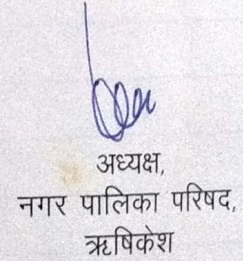 अध्यक्ष,
नगर पालिका परिषद,
ऋषिकेश